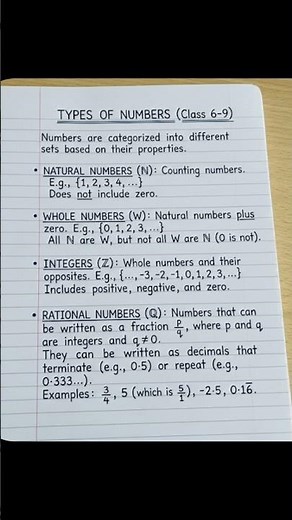 TYPES OF NUMBERS (Class 6-9)
Numbers are categorized into different
sets based on their properties.
• NATURAL NUMBERS (ℕ): Counting numbers.
E.g., {1, 2, 3, 4, ...}
Does not include zero.
• WHOLE NUMBERS (W): Natural numbers plus
zero. E.g., {0, 1, 2, 3, ...}
All ℕ are W, but not all W are ℕ (0 is not).
• INTEGERS (ℤ): Whole numbers and their
opposites. E.g., {..., -3, -2, -1, 0, 1, 2, 3, ...}
Includes positive, negative, and zero.
• RATIONAL NUMBERS (ℚ): Numbers that can
be written as a fraction p/q, where p and q
are integers and q ≠ 0.
They can be written as decimals that
terminate (e.g., 0·5) or repeat (e.g.,
0·333...).
Examples: 3/4, 5 (which is 5/1), -2·5, 0·16̅.